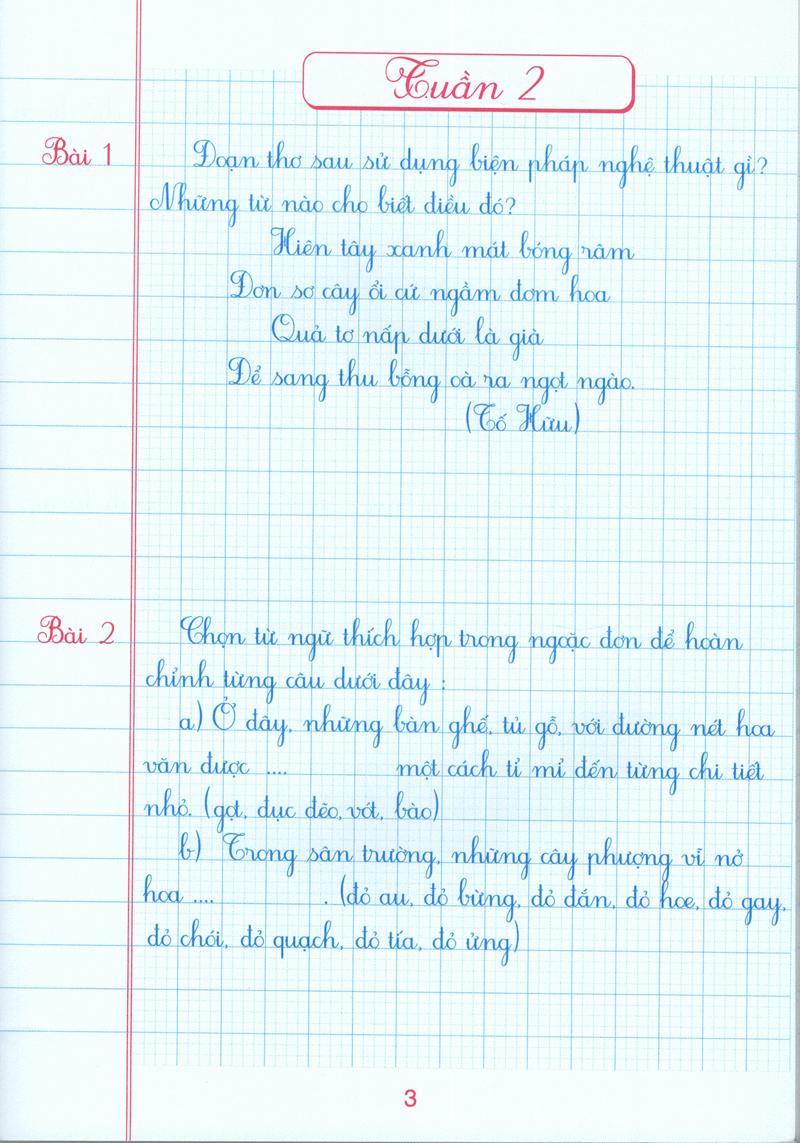 Tuần 2
Bài 1
Đoạn thơ sau sử dụng biện pháp nghệ thuật gì?
Những từ nào cho biết điều đó?
Hiên tây xanh mát bóng râm
Đơn sơ cây ổi cứ ngầm đơm hoa
Quả tơ nấp dưới là già
Để sang thu bỗng oà ra ngọt ngào.
(Tố Hữu)
Bài 2
Chọn từ ngữ thích hợp trong ngoặc đơn để hoàn
chỉnh từng câu dưới đây :
a) Ở đây, những bàn ghế, tủ gỗ, với đường nét hoa
văn được .... một cách tỉ mỉ đến từng chi tiết
nhỏ. (gọt, đục đẽo, vót, bào)
b) Trong sân trường, những cây phượng vĩ nở
hoa .... . (đỏ au, đỏ bừng, đỏ đắn, đỏ hoe, đỏ gay,
đỏ chói, đỏ quạch, đỏ tía, đỏ ửng)
3